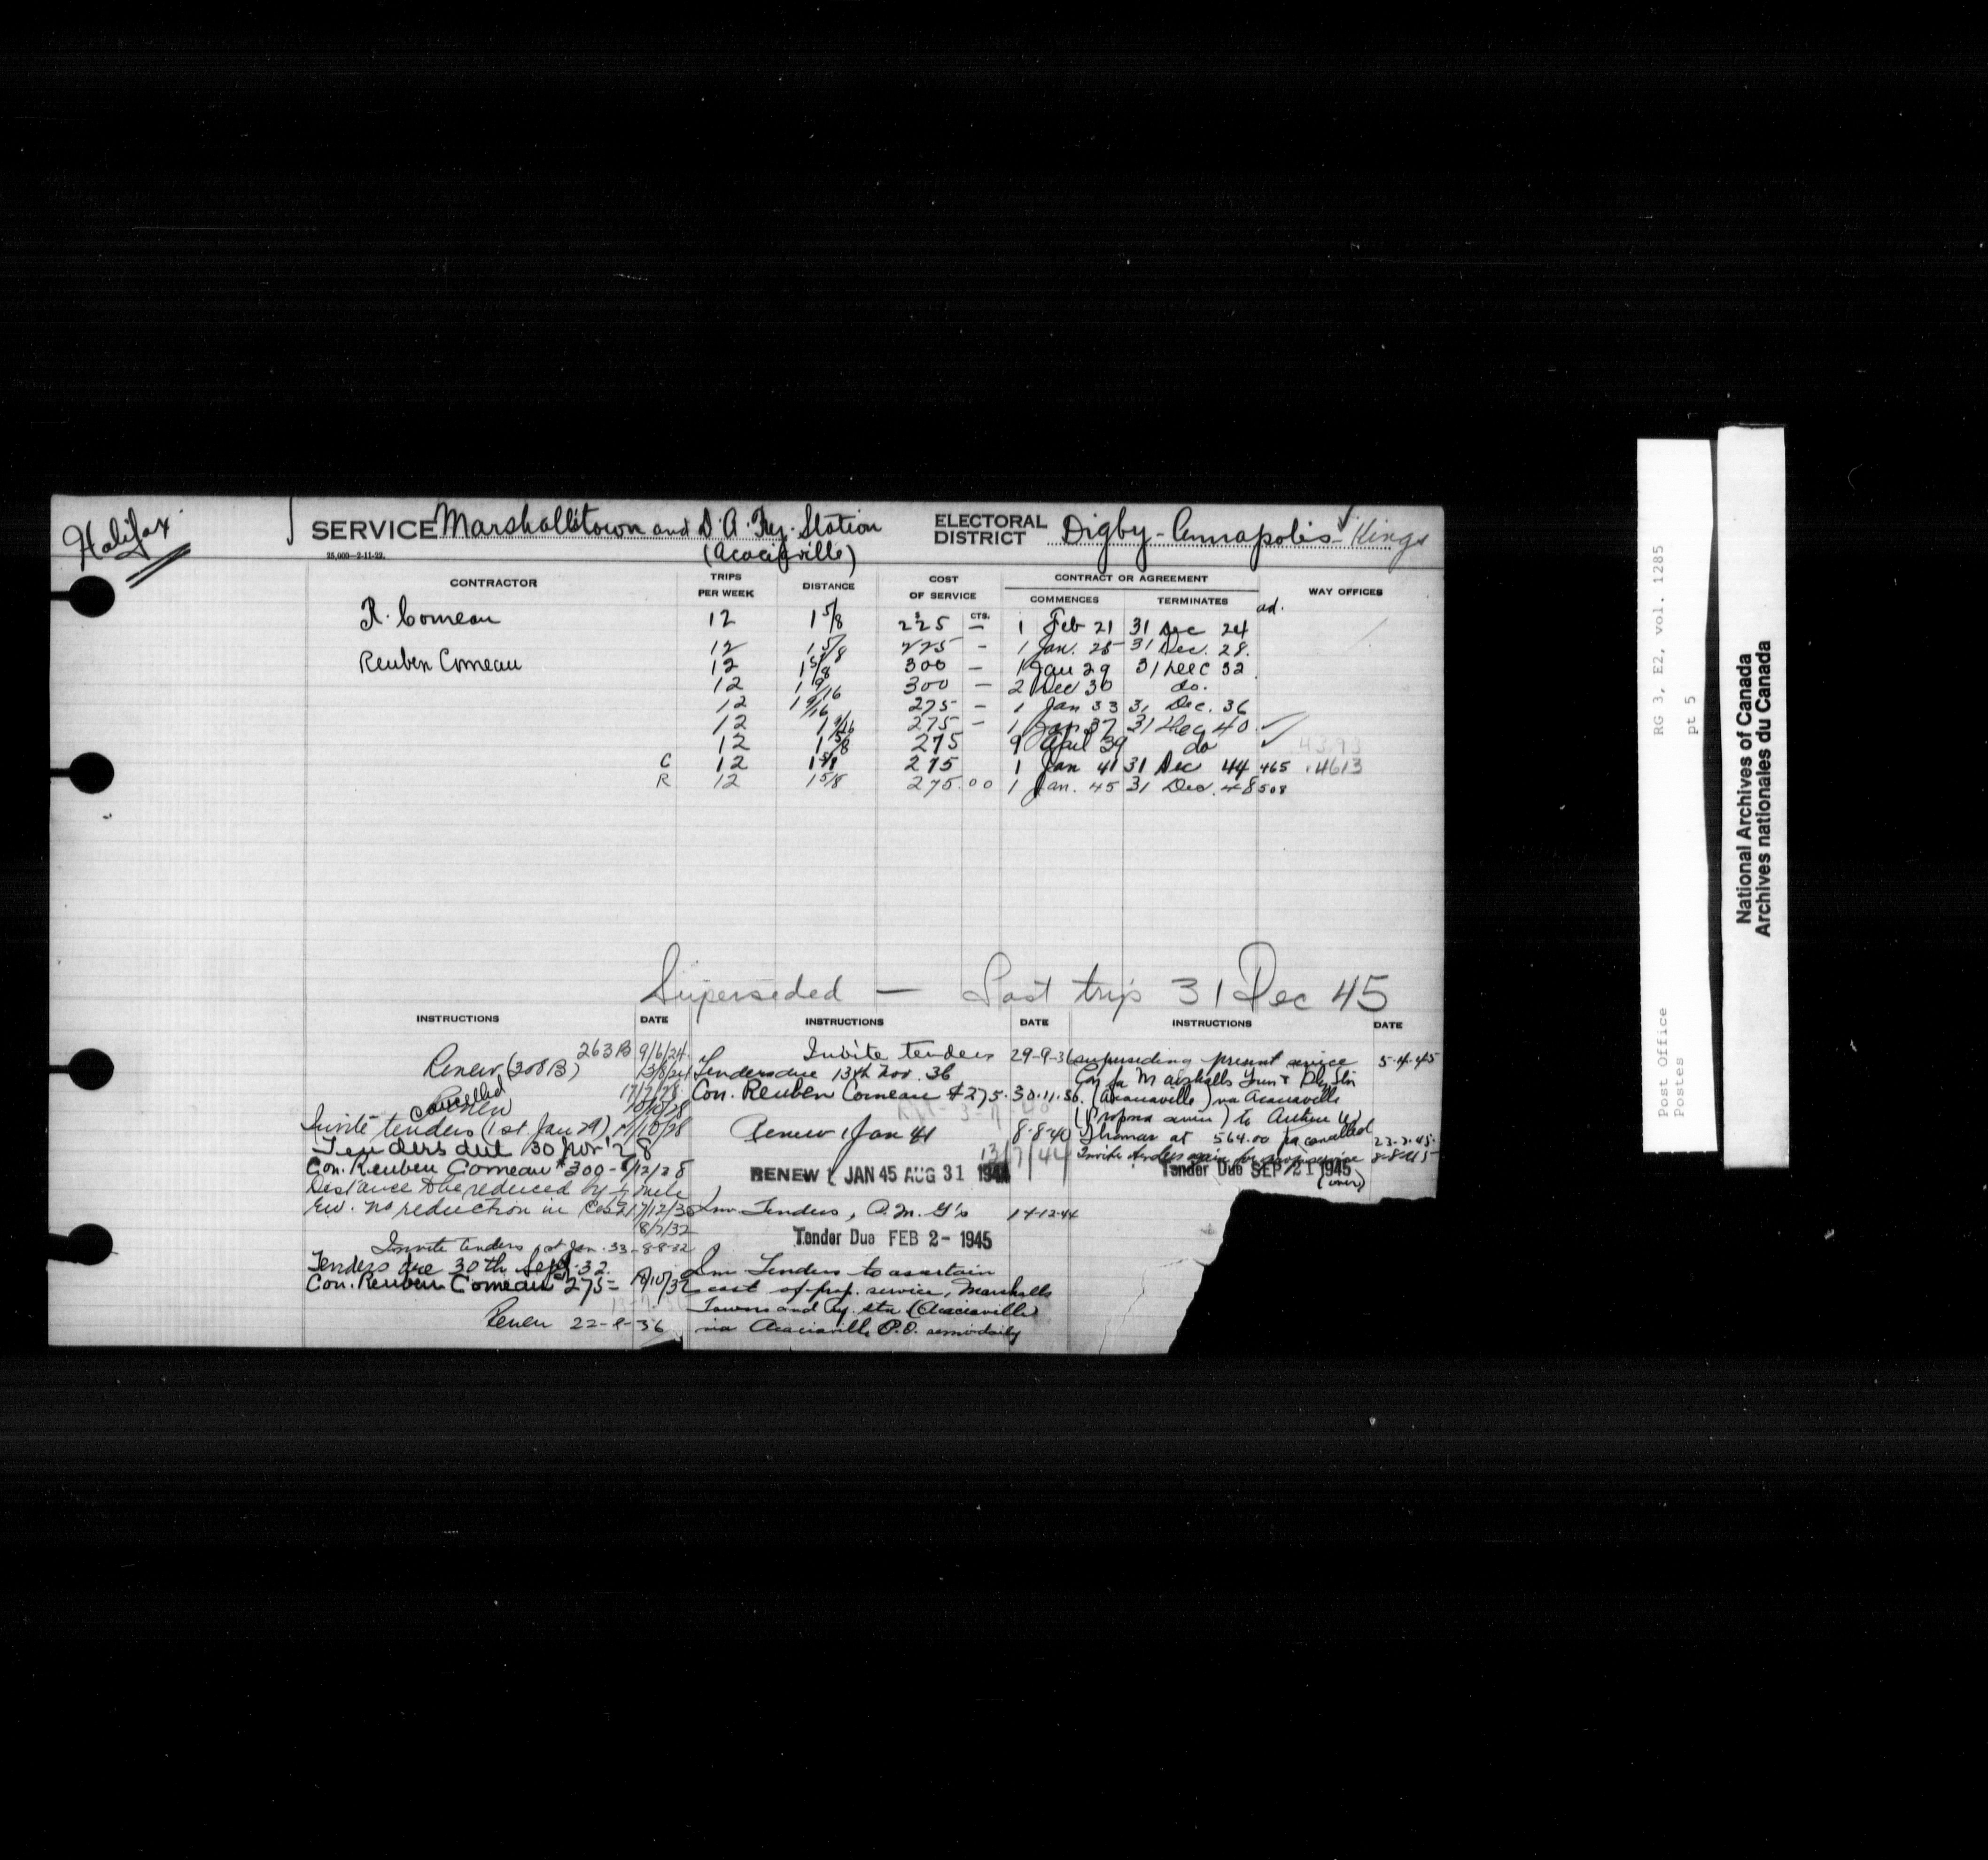 Halifax
SERVICE Marshalltown and D. A. Ry. Station
(Acaciaville)
ELECTORAL DISTRICT Digby - Annapolis - Kings
25,000-2-11-22.
CONTRACTOR TRIPS PER WEEK DISTANCE COST OF SERVICE CONTRACT OR AGREEMENT WAY OFFICES
$ CTS. COMMENCES TERMINATES
ad.
R. Comeau 12 1 5/8 225 — 1 Feb 21 31 Dec 24
12 1 5/8 225 — 1 Jan. 25 31 Dec. 28.
Reuben Comeau 12 1 5/8 300 — 1 Jan 29 31 Dec 32
12 1 9/16 300 — 2 Dec 30 do.
12 1 9/16 275 — 1 Jan 33 31 Dec. 36
12 1 9/16 275 — 1 Jan 37 31 Dec 40
12 1 5/8 275 9 April 39 do 4393
C 12 1 5/8 275 1 Jan 41 31 Dec 44 465 4613
R 12 1 5/8 275.00 1 Jan. 45 31 Dec. 48 508
Superseded — Last trip 31 Dec 45
INSTRUCTIONS DATE
263B 9/6/24
Renew (308B) 13/8/24
17/7/28
Cancelled
Renew 10/10/28
Invite tenders (1st. Jan 29) 17/10/28
Tenders due 30 Nov '28
Con. Reuben Comeau $300 - 7/12/28
Distance to be reduced by 1/16 mile
no reduction in Cost 17/12/30
8/7/32
Invite tenders 1st Jan. 33 - 8-8-32
Tenders due 30th Sept. 32.
Con. Reuben Comeau $275 = 18/10/32
Renew 22-8-36
INSTRUCTIONS DATE
Invite tenders 29-9-36
Tenders due 13th Nov. 36
Con. Reuben Comeau $275. 30.11.36.
Renew 1 Jan 41 8-8-40
13/7/44
RENEW 1 JAN 45 AUG 31 1944
Inv. Tenders, P.M. G's 14-12-44
Tender Due FEB 2- 1945
Inv Tenders to ascertain
cost of prop. service, Marshalls
Town and Ry. Stn (Acaciaville)
via Acaciaville P.O. semi-daily
INSTRUCTIONS DATE
superseding present service 5-4-45
Con for Marshalls Town & Rly Stn
(Acaciaville) via Acaciaville
(Propsd serv.) to Arthur W.
Thomas at 564.00 cancelled 23-7-45.
Invite tenders again for service 8-8-45
Tender Due SEP 21 1945
RG 3, E2, vol. 1285
pt 5
Post Office
Postes
National Archives of Canada
Archives nationales du Canada